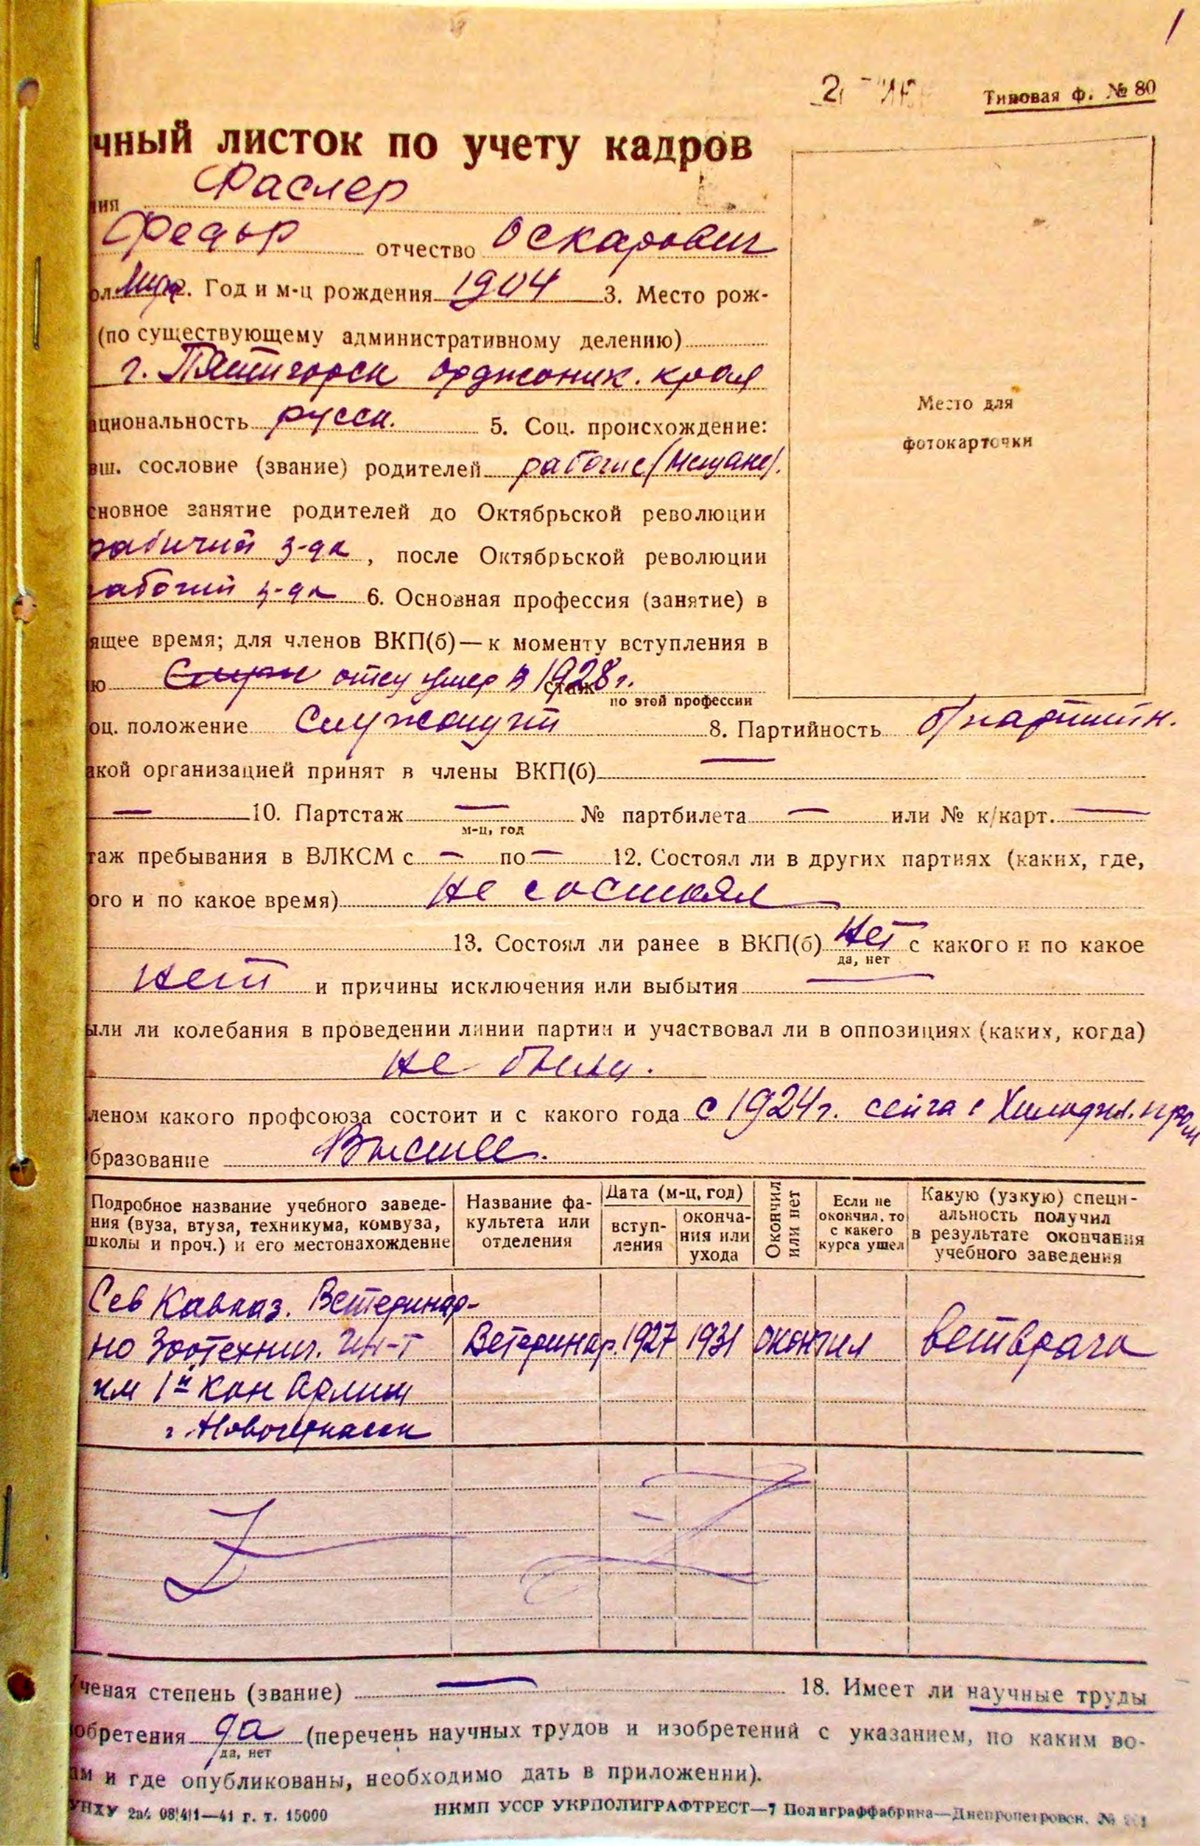 1
2
Типовая ф. № 80
чный листок по учету кадров
ия Фаслер
Федор отчество Оскарович
ол Муж. 2. Год и м-ц рождения 1904 3. Место рож-
(по существующему административному делению)
г. Пятигорск Орджоник. края
Место для
фотокарточки
циональность русск. 5. Соц. происхождение:
вш. сословие (звание) родителей рабочие (мещане).
сновное занятие родителей до Октябрьской революции
рабочий з-да, после Октябрьской революции
рабочий з-да 6. Основная профессия (занятие) в
ящее время; для членов ВКП(б) — к моменту вступления в
ю отец умер в 1928 г.
стаж
по этой профессии
оц. положение Служащий 8. Партийность б/партийн.
акой организацией принят в члены ВКП(б) —
— 10. Партстаж — № партбилета — или № к/карт. —
м-ц, год
таж пребывания в ВЛКСМ с — по — 12. Состоял ли в других партиях (каких, где,
ого и по какое время) Не состоял
13. Состоял ли ранее в ВКП(б) Нет с какого и по какое
да, нет
нет и причины исключения или выбытия —
ыли ли колебания в проведении линии партии и участвовал ли в оппозициях (каких, когда)
не было.
леном какого профсоюза состоит и с какого года с 1924 г.
бразование Высшее.
Подробное название учебного заведе-
ния (вуза, втуза, техникума, комвуза,
школы и проч.) и его местонахождение
Название фа-
культета или
отделения
Дата (м-ц, год)
вступ-
ления
оконча-
ния или
ухода
Окончил
или нет
Если не
окончил, то
с какего
курса ушел
Какую (узкую) специ-
альность получил
в результате окончания
учебного заведения
Сев Кавказ. Ветеринар-
но Зоотехнич. Ин-т Ветеринар. 1927 1931 окончил ветврача
им 1й Кон Армии
г. Новочеркасск
ченая степень (звание) — 18. Имеет ли научные труды
обретения да (перечень научных трудов и изобретений с указанием, по каким во-
да, нет
ам и где опубликованы, необходимо дать в приложении).
УНХУ 2а4 08/411—41 г. т. 15000 НКМП УССР УКРПОЛИГРАФТРЕСТ—7 Полиграффабрика—Днепропетровск. №